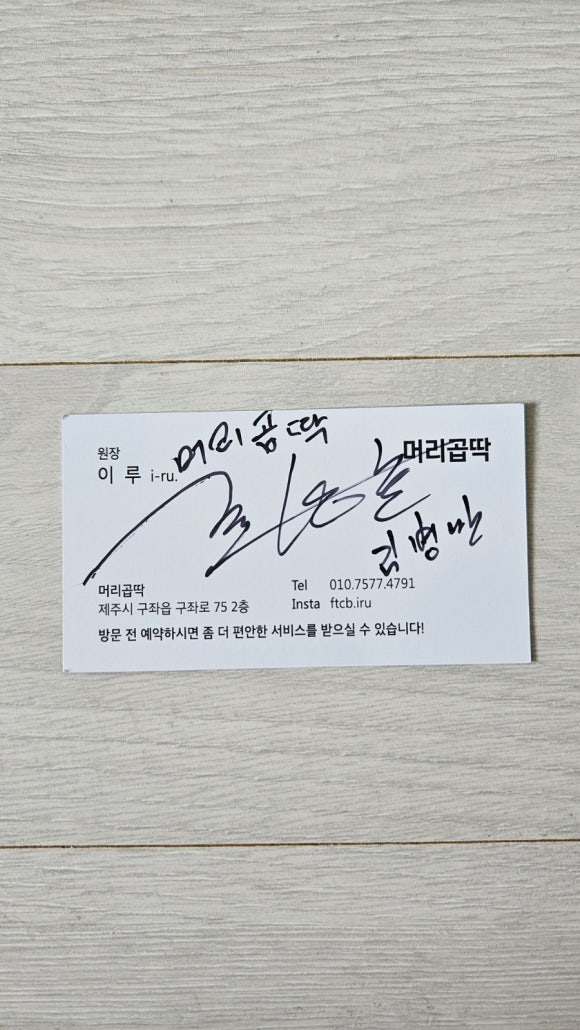 원장
이 루 i-ru.
머리곱딱
머리곱딱
김병만
머리곱딱
제주시 구좌읍 구좌로 75 2층
Tel 010.7577.4791
Insta ftcb.iru
방문 전 예약하시면 좀 더 편안한 서비스를 받으실 수 있습니다!